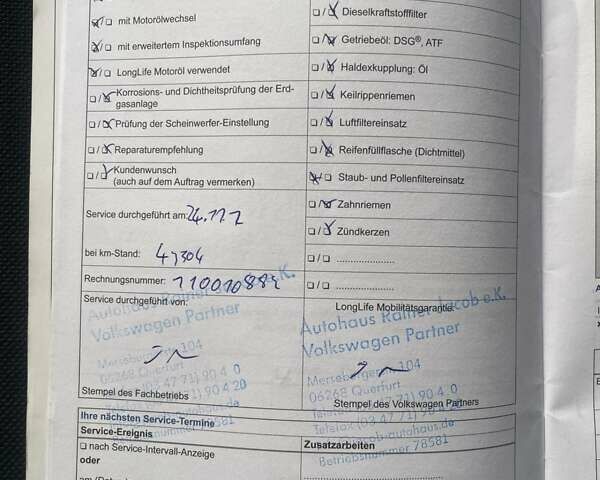 mit Motorölwechsel
mit erweitertem Inspektionsumfang
LongLife Motoröl verwendet
Korrosions- und Dichtheitsprüfung der Erd-
gasanlage
Prüfung der Scheinwerfer-Einstellung
Reparaturempfehlung
Kundenwunsch
(auch auf dem Auftrag vermerken)
Service durchgeführt am:
bei km-Stand: 47304
Rechnungsnummer:
Service durchgeführt von:
Autohaus
Volkswagen Partner
06268 Querfurt
Stempel des Fachbetriebs
Dieselkraftstofffilter
Getriebeöl: DSG®, ATF
Haldexkupplung: Öl
Keilrippenriemen
Luftfiltereinsatz
Reifenfüllflasche (Dichtmittel)
Staub- und Pollenfiltereinsatz
Zahnriemen
Zündkerzen
.....................
.....................
LongLife Mobilitätsgarantie:
Autohaus Rainer Jacob e.K.
Volkswagen Partner
Merseburger 104
06268 Querfurt
Telefon (03 47 71) 90 4 0
Telefax (03 47 71) 90 4 20
Stempel des Volkswagen Partners
jacob-autohaus.de
Betriebsnummer 78581
Ihre nächsten Service-Termine
Service-Ereignis
Zusatzarbeiten
nach Service-Intervall-Anzeige
oder